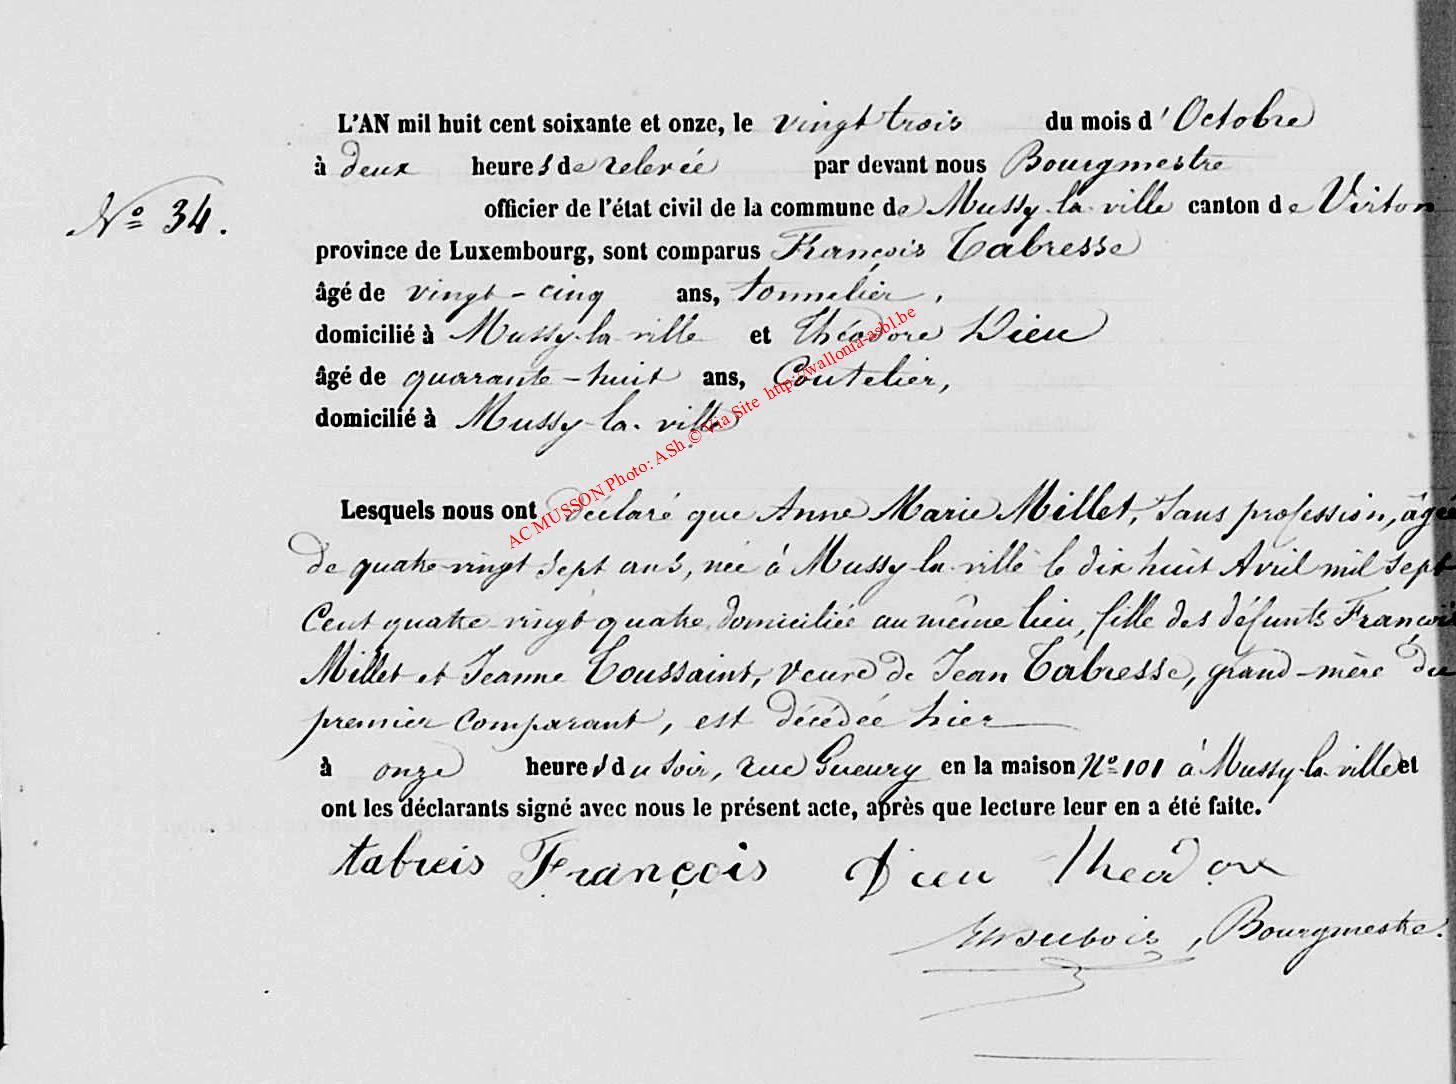 L'AN mil huit cent soixante et onze, le vingt trois du mois d'Octobre
à deux heures de relevée par devant nous Bourgmestre
Nº 34.
officier de l'état civil de la commune de Mussy-la-ville canton de Virton
province de Luxembourg, sont comparus François Tabresse
âgé de vingt-cinq ans, tonnelier,
domicilié à Mussy-la-ville et Théodore Dieu
âgé de quarante-huit ans, Coutelier,
domicilié à Mussy-la-ville
AC MUSSON Photo: ASh © Via Site http://wallonia-asbl.be
Lesquels nous ont déclaré que Anne Marie Millet, sans profession, âgée
de quatre-vingt sept ans, née à Mussy-la-ville le dix huit Avril mil sept
Cent quatre-vingt quatre, domiciliée au même lieu, fille des défunts François
Millet et Jeanne Toussaint, veuve de Jean Tabresse, grand-mère du
premier Comparant, est décédée hier
à onze heures du soir, rue Gueury en la maison Nº 101 à Mussy-la-ville et
ont les déclarants signé avec nous le présent acte, après que lecture leur en a été faite.
tabreis François Dieu Theodore
Dubois, Bourgmestre.